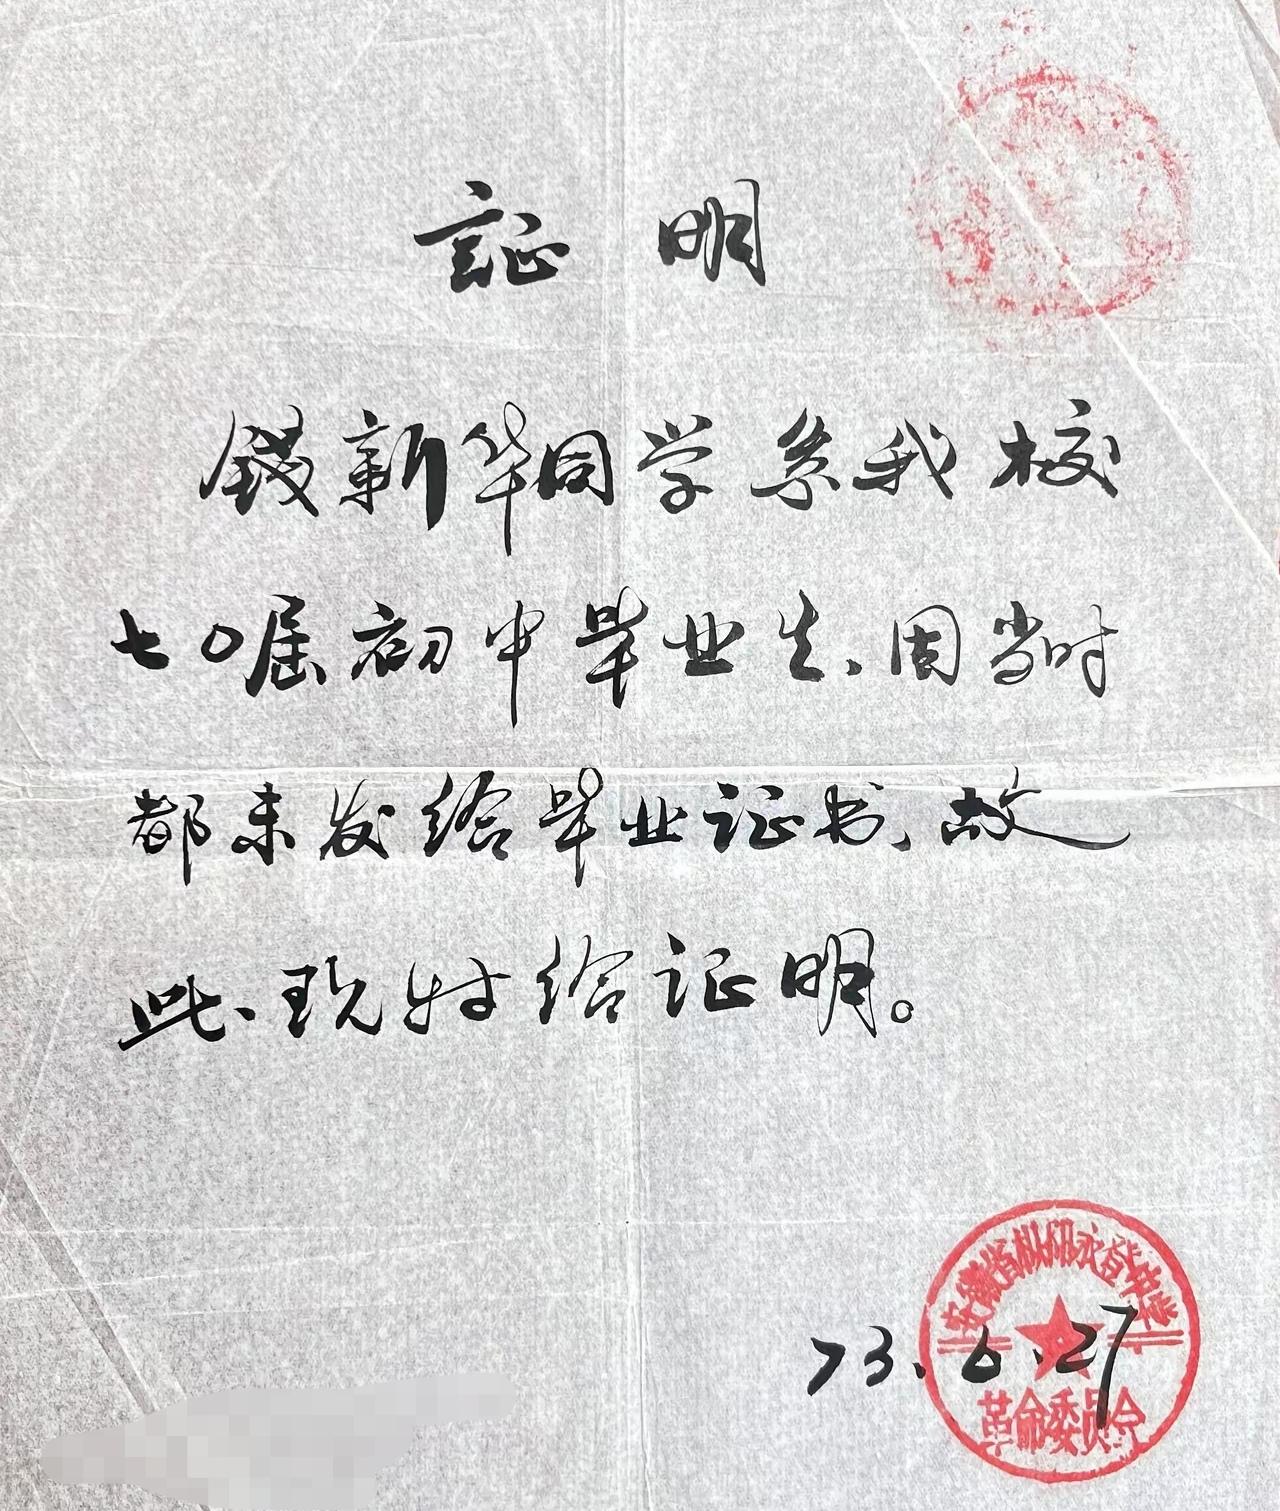 証明
钱新华同学系我校
七〇届初中毕业生、因当时
都未发给毕业证书、故
此、现特给证明。
73.6.27
安徽省枞阳永登中学
革命委员会